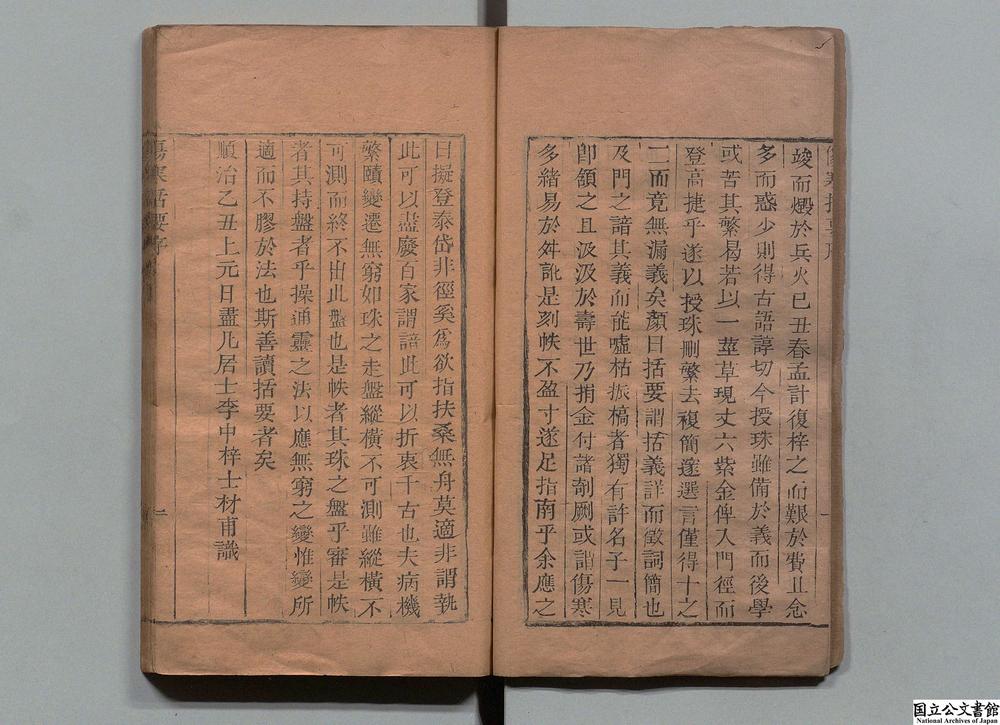 竣而燬於兵火己丑春孟計復梓之而艱於費且念
多而惑少則得古語諄切今授珠雖備於義而後學
或苦其繁曷若以一莖草現丈六紫金俾入門徑而
登高捷乎遂以授珠刪繁去複簡邃選言僅得十之
二而竟無漏義矣顏曰括要謂括義詳而徵詞簡也
及門之諳其義而能噓枯振槁者獨有許名子一見
卽領之且汲汲於壽世乃捐金付諸剞劂或謂傷寒
多緒易於舛訛是刻帙不盈寸遂足指南乎余應之
曰擬登泰岱非徑奚爲欲指扶桑無舟莫適非謂執
此可以盡廢百家謂諳此可以折衷千古也夫病機
繁賾變遷無窮如珠之走盤縱橫不可測雖縱橫不
可測而終不出此盤也是帙者其珠之盤乎審是帙
者其持盤者乎操通靈之法以應無窮之變惟變所
適而不膠於法也斯善讀括要者矣
順治乙丑上元日盡凡居士李中梓士材甫識
傷寒括要序
二
國立公文書館
National Archives of Japan